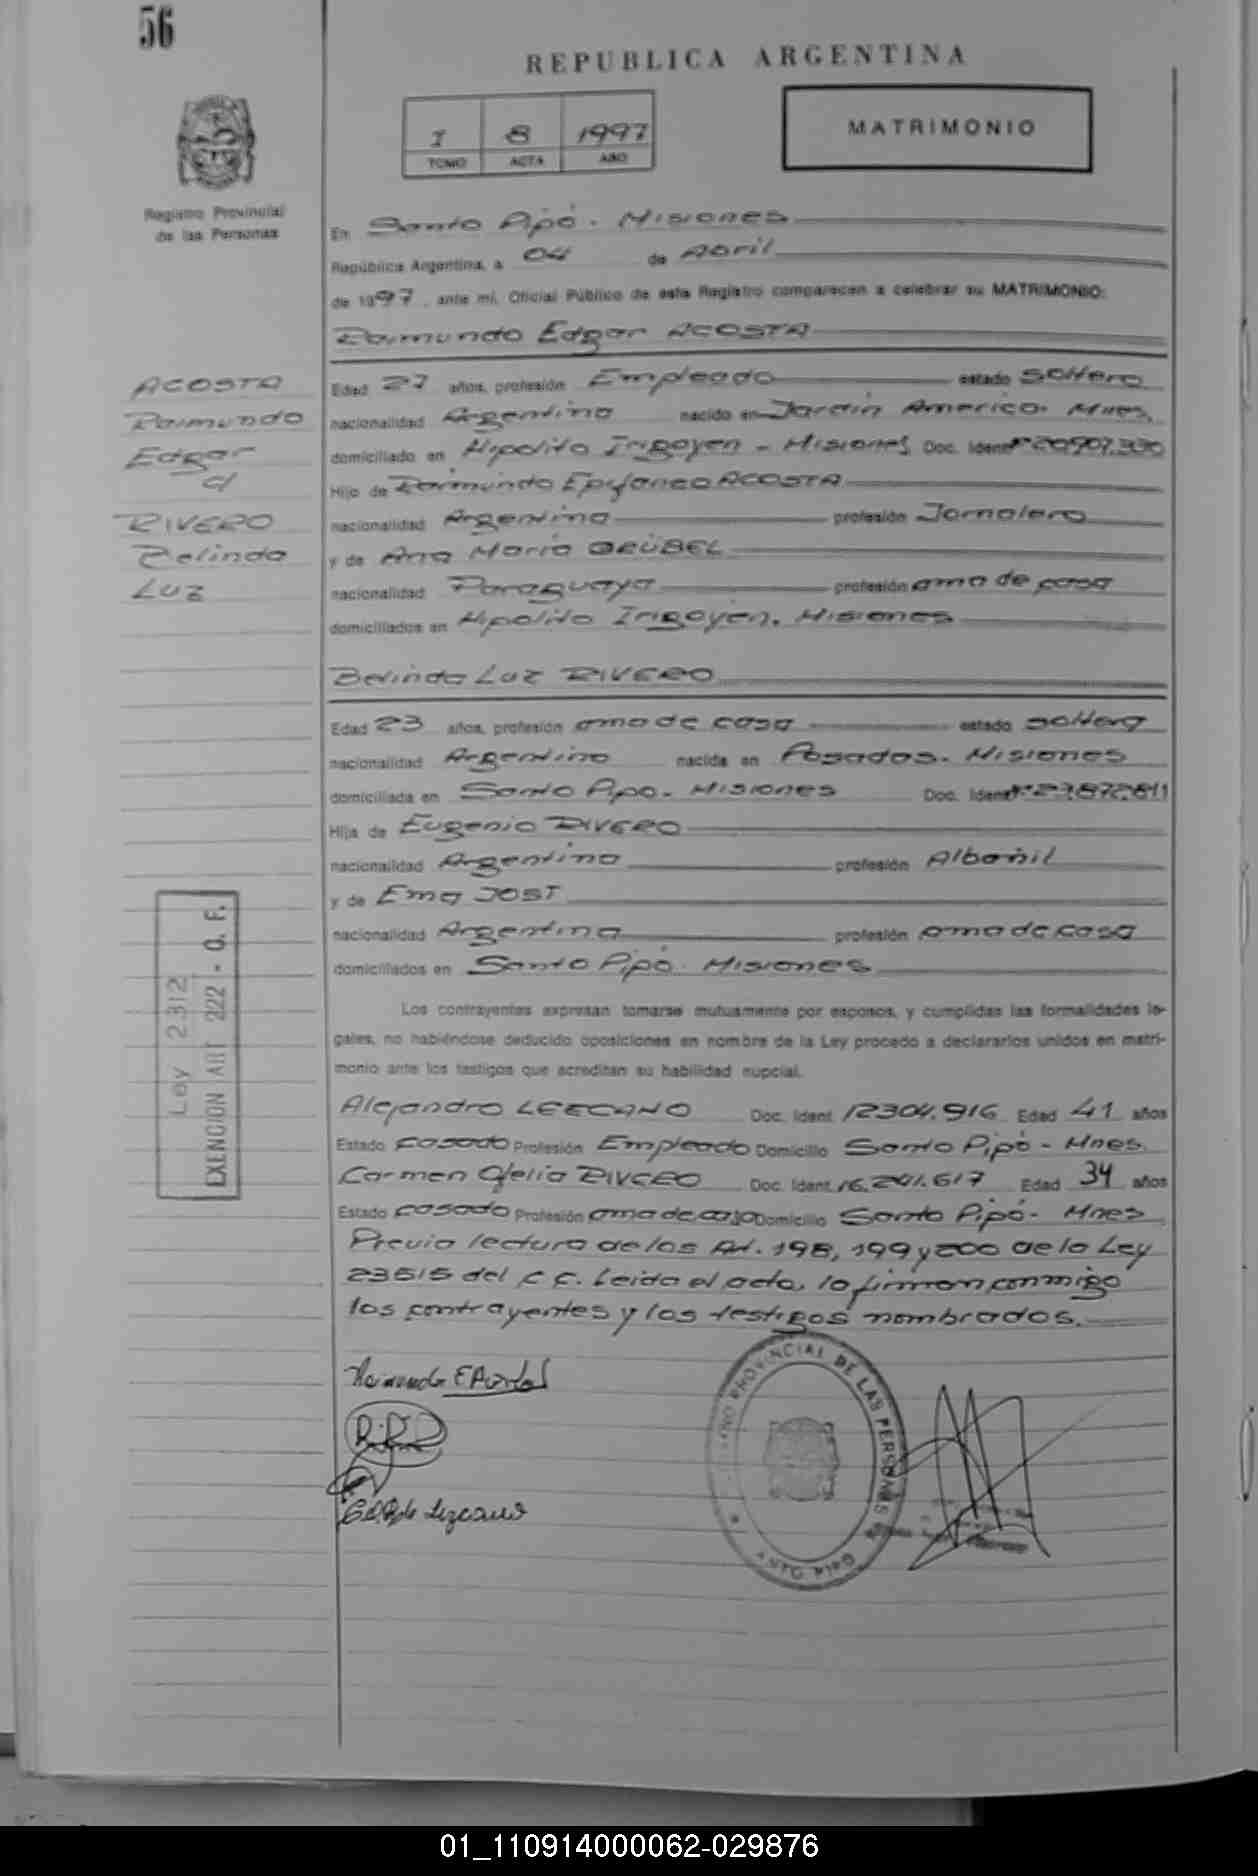 56
REPUBLICA ARGENTINA
I 8 1997
TOMO ACTA AÑO
MATRIMONIO
Registro Provincial
de las Personas
En Santo Pipó. Misiones
República Argentina, a 04 de Abril
de 1997, ante mí, Oficial Público de este Registro comparecen a celebrar su MATRIMONIO:
Raimundo Edgar ACOSTA
ACOSTA
Raimundo
Edgar
c/
RIVERO
Belinda
Luz
Edad 27 años, profesión Empleado estado soltero
nacionalidad Argentina nacido en Jardín America. Mnes.
domiciliado en Hipolito Irigoyen - Misiones Doc. Ident. Nº 20.907.330
Hijo de Raimundo Epifaneo ACOSTA
nacionalidad Argentina profesión Jornalero
y de Ana Maria GRÜBEL
nacionalidad Paraguaya profesión ama de casa
domiciliados en Hipolito Irigoyen. Misiones
Belinda Luz RIVERO
Edad 23 años, profesión ama de casa estado soltera
nacionalidad Argentina nacida en Posadas. Misiones
domiciliada en Santo Pipó. Misiones Doc. Ident. Nº 23.872.811
Hija de Eugenio RIVERO
nacionalidad Argentina profesión Albañil
y de Ema JOST
nacionalidad Argentina profesión ama de casa
domiciliados en Santo Pipó. Misiones
Ley 2312
EXENCION ART 222 - C. F.
Los contrayentes expresan tomarse mutuamente por esposos, y cumplidas las formalidades le-
gales, no habiéndose deducido oposiciones en nombre de la Ley procedo a declararlos unidos en matri-
monio ante los testigos que acreditan su habilidad nupcial.
Alejandro LEZCANO Doc. Ident. 12304.916 Edad 41 años
Estado casado Profesión Empleado Domicilio Santo Pipó - Mnes.
Carmen Ofelia RIVERO Doc. Ident. 16.241.617 Edad 34 años
Estado casado Profesión ama de casa Domicilio Santo Pipó - Mnes
Previa lectura de los Art. 198, 199 y 200 de la Ley
23515 del C C. Leida el acta, lo firman conmigo
los contrayentes y los testigos nombrados.
Raimundo E Acosta
de Lezcano
PROVINCIAL DE LAS PERSONAS
SANTO PIPO
01_110914000062-029876